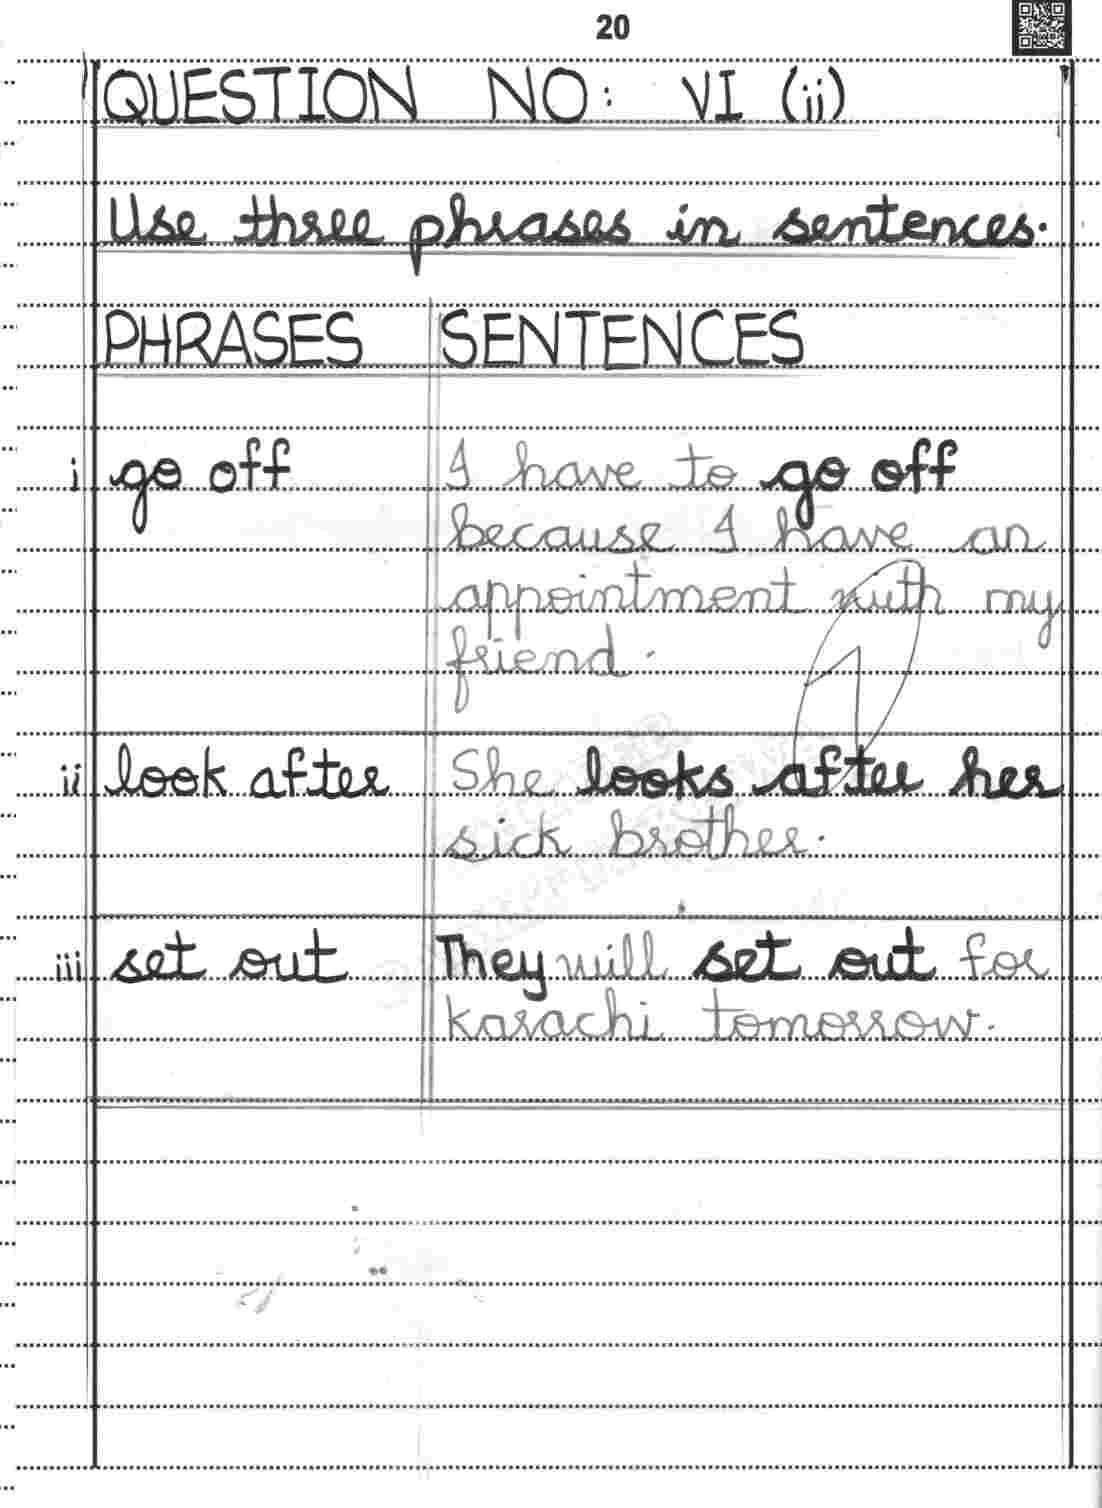 20
QUESTION NO: VI (ii)
Use three phrases in sentences.
PHRASES SENTENCES
i go off I have to go off
because I have an
appointment with my
friend.
ii look after She looks after her
sick brother.
iii set out They will set out for
Karachi tomorrow.